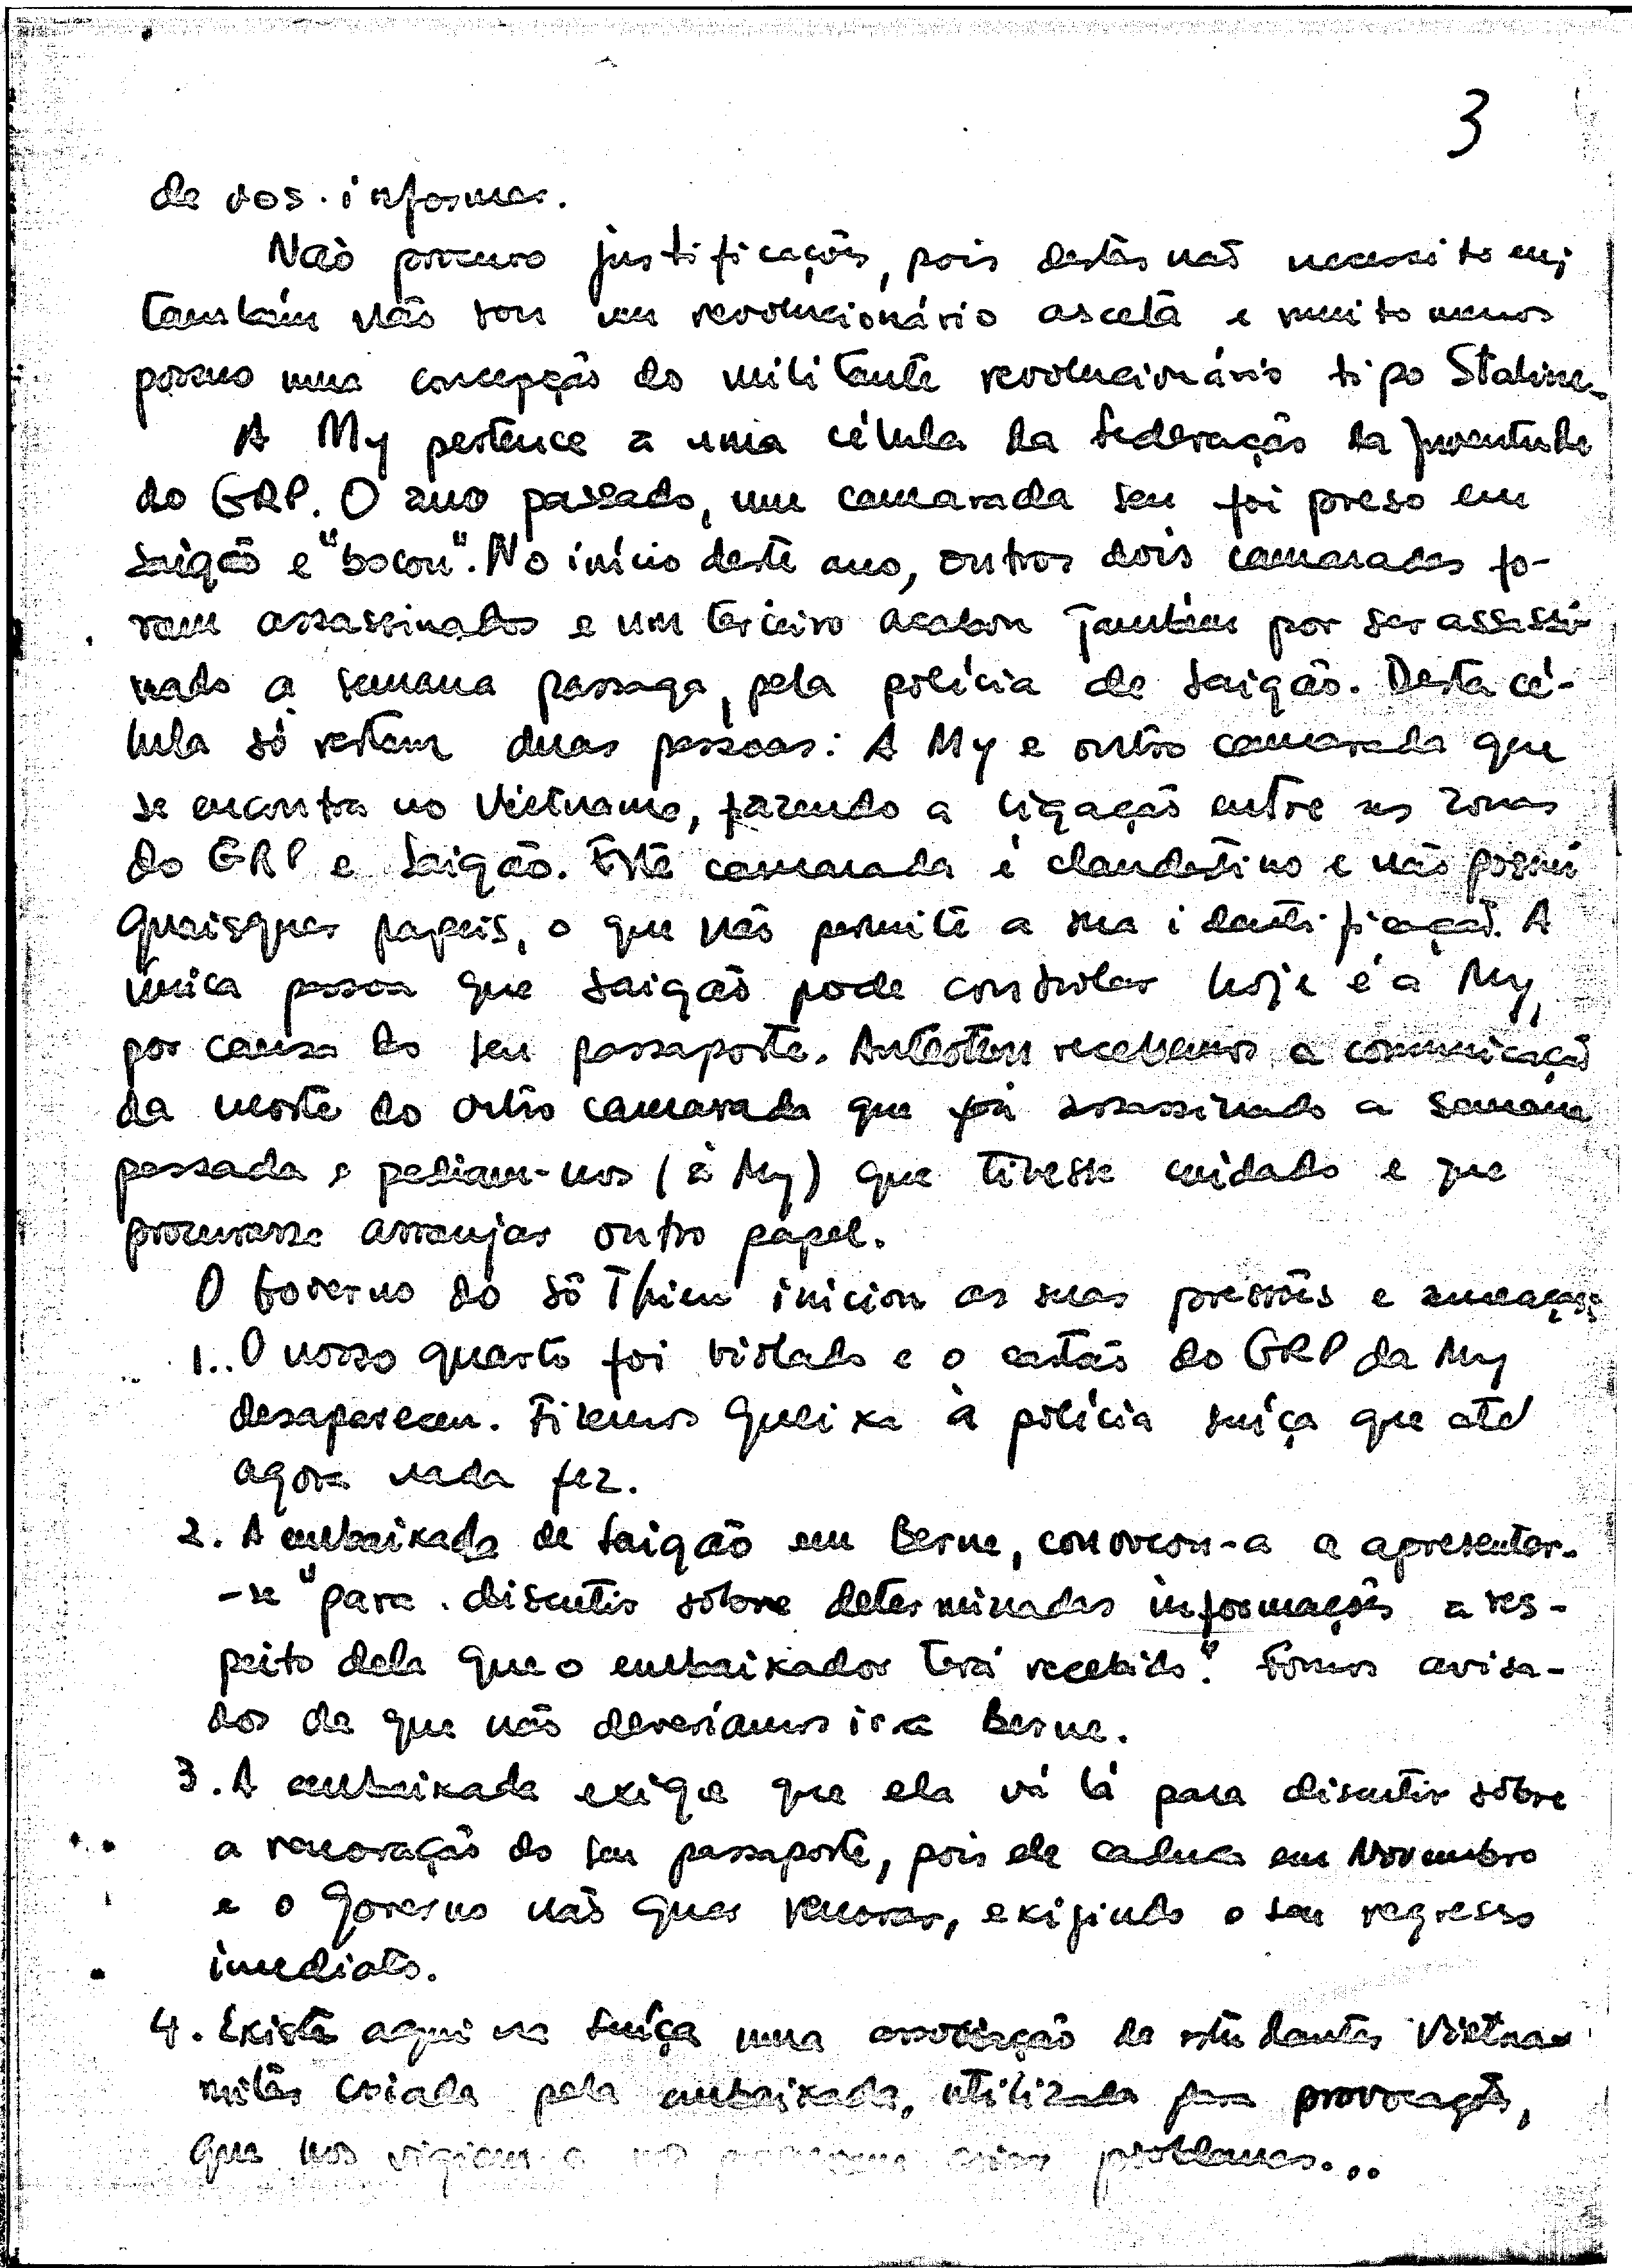 3
de vos informar.
Não procuro justificações, pois destas não necessito e nj
também não sou um revolucionário asceta e muito menos
possuo uma concepção do militante revolucionário tipo Staline.
A My pertence a uma célula da Federação da Juventude
do GRP. O ano passado, um camarada seu foi preso em
Saigão e "bocou". No início deste ano, outros dois camaradas fo-
ram assassinados e um terceiro acabou também por ser assassi-
nado a semana passaga, pela polícia de Saigão. Desta cé-
lula só restam duas pessoas: A My e outro camarada que
se encontra no Vietname, fazendo a ligação entre as zonas
do GRP e Saigão. Este camarada é clandestino e não possui
quaisquer papeis, o que não permite a sua identificação. A
única pessoa que Saigão pode controlar hoje é a My,
por causa do seu passaporte. Anteotem recebemos a comunicação
da morte do outro camarada que foi assassinado a semana
passada e pediam-nos (à My) que tivesse cuidado e que
procurasse arranjar outro papel.
O Governo do Sô Thieu iniciou as suas pressões e ameaças:
1.. O nosso quarto foi violado e o cartão do GRP da My
desapareceu. Fizemos queixa à polícia suíça que até
agora nada fez.
2. A embaixada de Saigão em Berne, convocou-a a apresentar-
-se "para discutir sôbre determinadas informações a res-
peito dela que o embaixador terá recebido". Fomos avisa-
dos de que não deveríamos ir a Berne.
3. A embaixada exige que ela vá lá para discutir sôbre
a renovação do seu passaporte, pois ele caduca em Novembro
e o Governo não quer renovar, exigindo o seu regresso
imediato.
4. Existe aqui na Suíça uma associação de estudantes Vietna-
mitas criada pela embaixada, utilizada para provocações,
que nos vigiam e nos criar problemas...